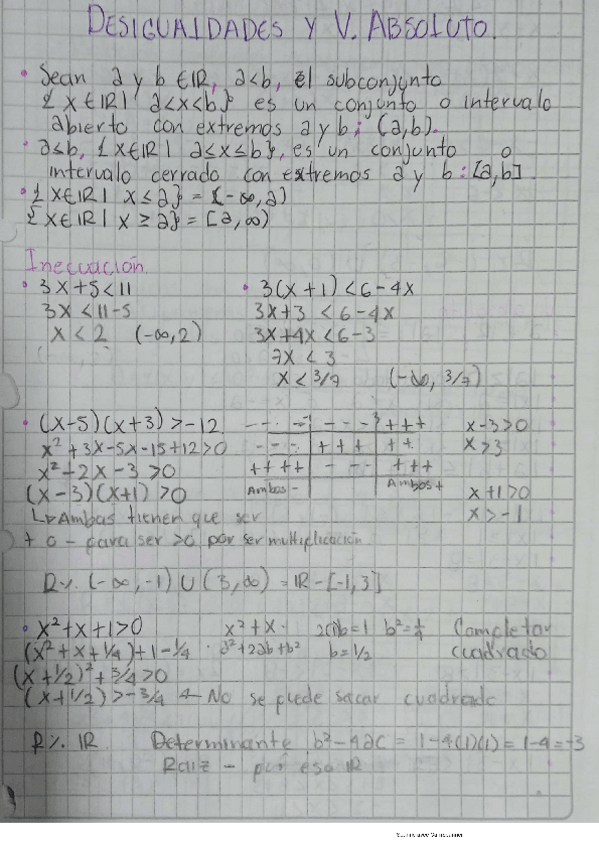 DESIGUALDADES Y V. ABSOLUTO.
• Sean a y b ∈ IR, a<b, el subconjunto
{ x ∈ IR | a<x<b} es un conjunto o intervalo
abierto con extremos a y b; (a,b).
• a≤b, { x∈IR | a≤x≤b}, es un conjunto o
intervalo cerrado con extremos a y b: [a,b].
• { x∈IR | x≤a} = (-∞,a)
{ x∈IR | x≥a} = [a,∞)
Inecuación
• 3x+5<11
3x<11-5
x<2 (-∞,2)
• 3(x+1)<6-4x
3x+3 <6-4x
3x+4x<6-3
7x<3
x<3/7 (-∞, 3/7)
• (x-5)(x+3)>-12
x²+3x-5x-15+12>0
x²-2x-3>0
(x-3)(x+1)>0
↳Ambas tienen que ser
+ o - para ser >0 por ser multiplicación.
- - - - -1 - - - 3 + + +
- - - + + + + +
+ + + + - - - + + +
Ambos - Ambos +
x-3>0
x>3
x+1>0
x>-1
R//. (-∞,-1) U (3,∞) = IR - [-1,3]
• x²+x+1>0 x²+x 2(1)b=1 b²=¼ Completar
(x²+x+1/4)+1-1/4 · a²+2ab+b² b=1/2 cuadrado
(x+1/2)²+3/4>0
(x+1/2)>-3/4 ← No se puede sacar cuadrado
R//. IR Determinante b²-4ac = 1-4(1)(1)=1-4=-3
Raiz - por eso IR